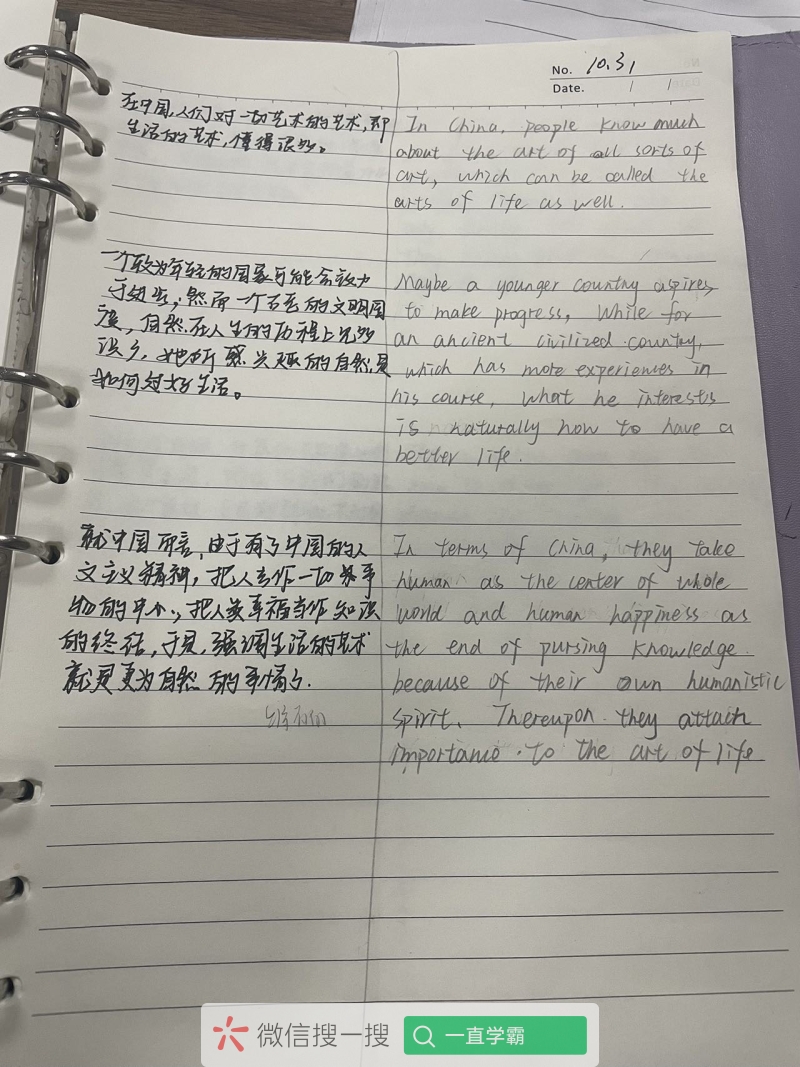 No. 10.31
Date. / /
在中国,人们对一切艺术的艺术,即
生活的艺术,懂得很多。
In China, people know much
about the art of all sorts of
art, which can be called the
arts of life as well.
一个较为年轻的国家可能会致力
于进步;然而一个古老的文明国
度,自然在人生的历程上见多
识多,她所感兴趣的自然是
如何过好生活。
Maybe a younger country aspires
to make progress, While for
an ancient civilized country,
which has more experiences in
his course, what he interests
is naturally how to have a
better life.
就中国而言,由于有了中国的人
文主义精神,把人当作一切事
物的中心,把人类幸福当作知识
的终结,于是,强调生活的艺术
就是更为自然的事情了.
In terms of China, they take
human as the center of whole
world and human happiness as
the end of pursing knowledge.
because of their own humanistic
spirit. Thereupon. they attach
importance. to the art of life
微信搜一搜
一直学霸